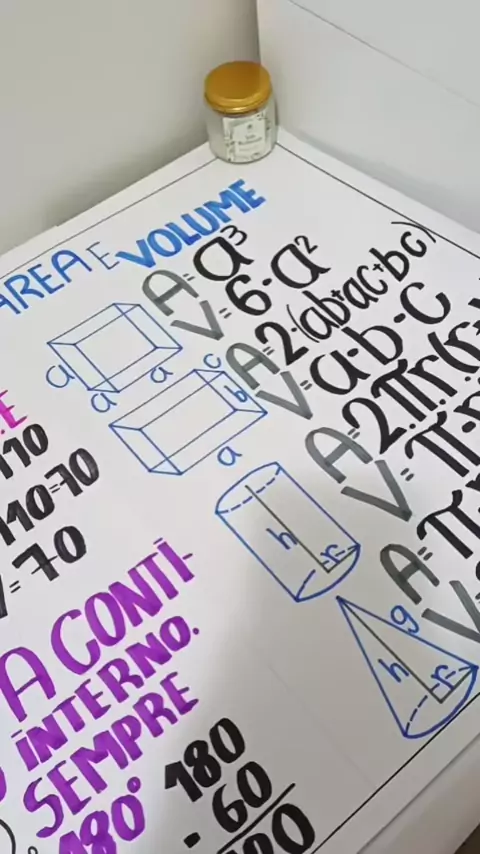 AREA E VOLUME
A=a³
V=6·a²
a
a
a
A=2·(ab+ac+bc)
V=a·b·c
c
b
a
A=2πr(r
V=π·r
h
r
A=π
V=
g
h
r
E
110
110=70
=70
A CONTI-
INTERNO.
SEMPRE
180°
180
- 60